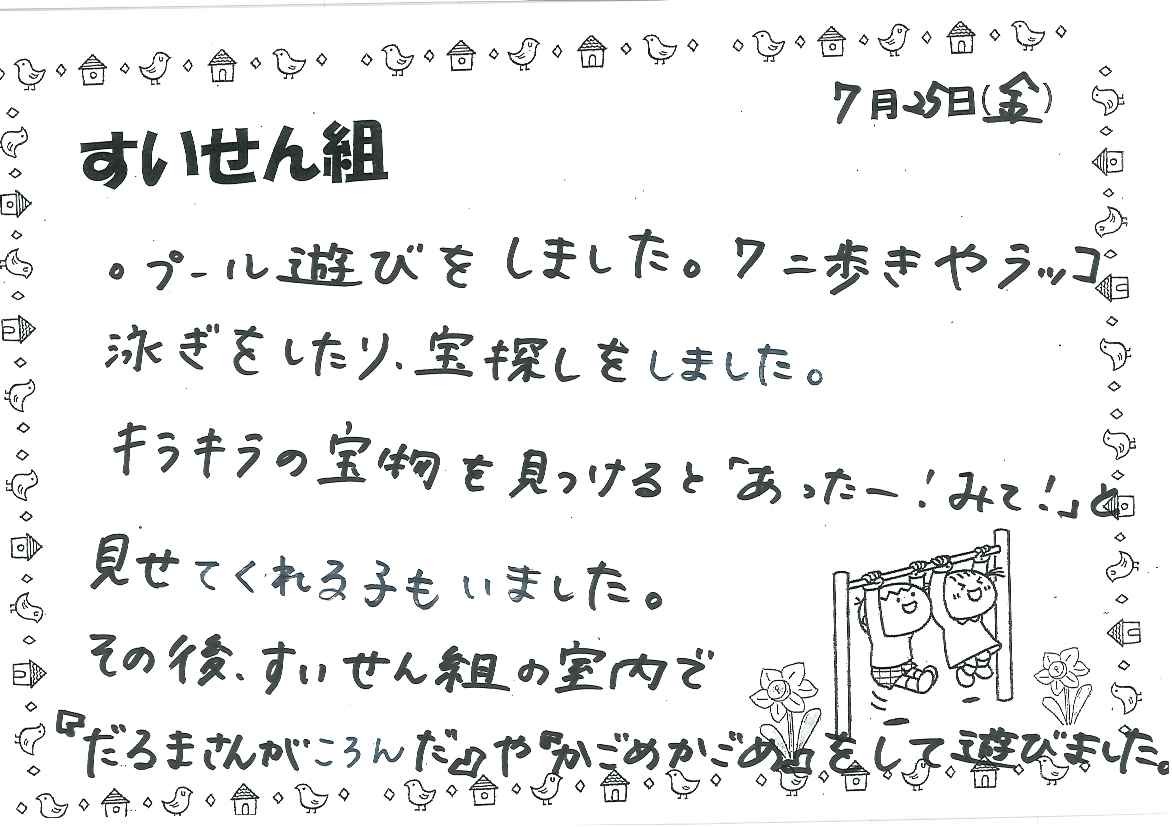 7月25日(金)
すいせん組
。プール遊びをしました。ワニ歩きやラッコ
泳ぎをしたり、宝探しをしました。
キラキラの宝物を見つけると「あったー!みて!」と
見せてくれる子もいました。
その後、すいせん組の室内で
『だるまさんがころんだ』や『かごめかごめ』をして遊びました。